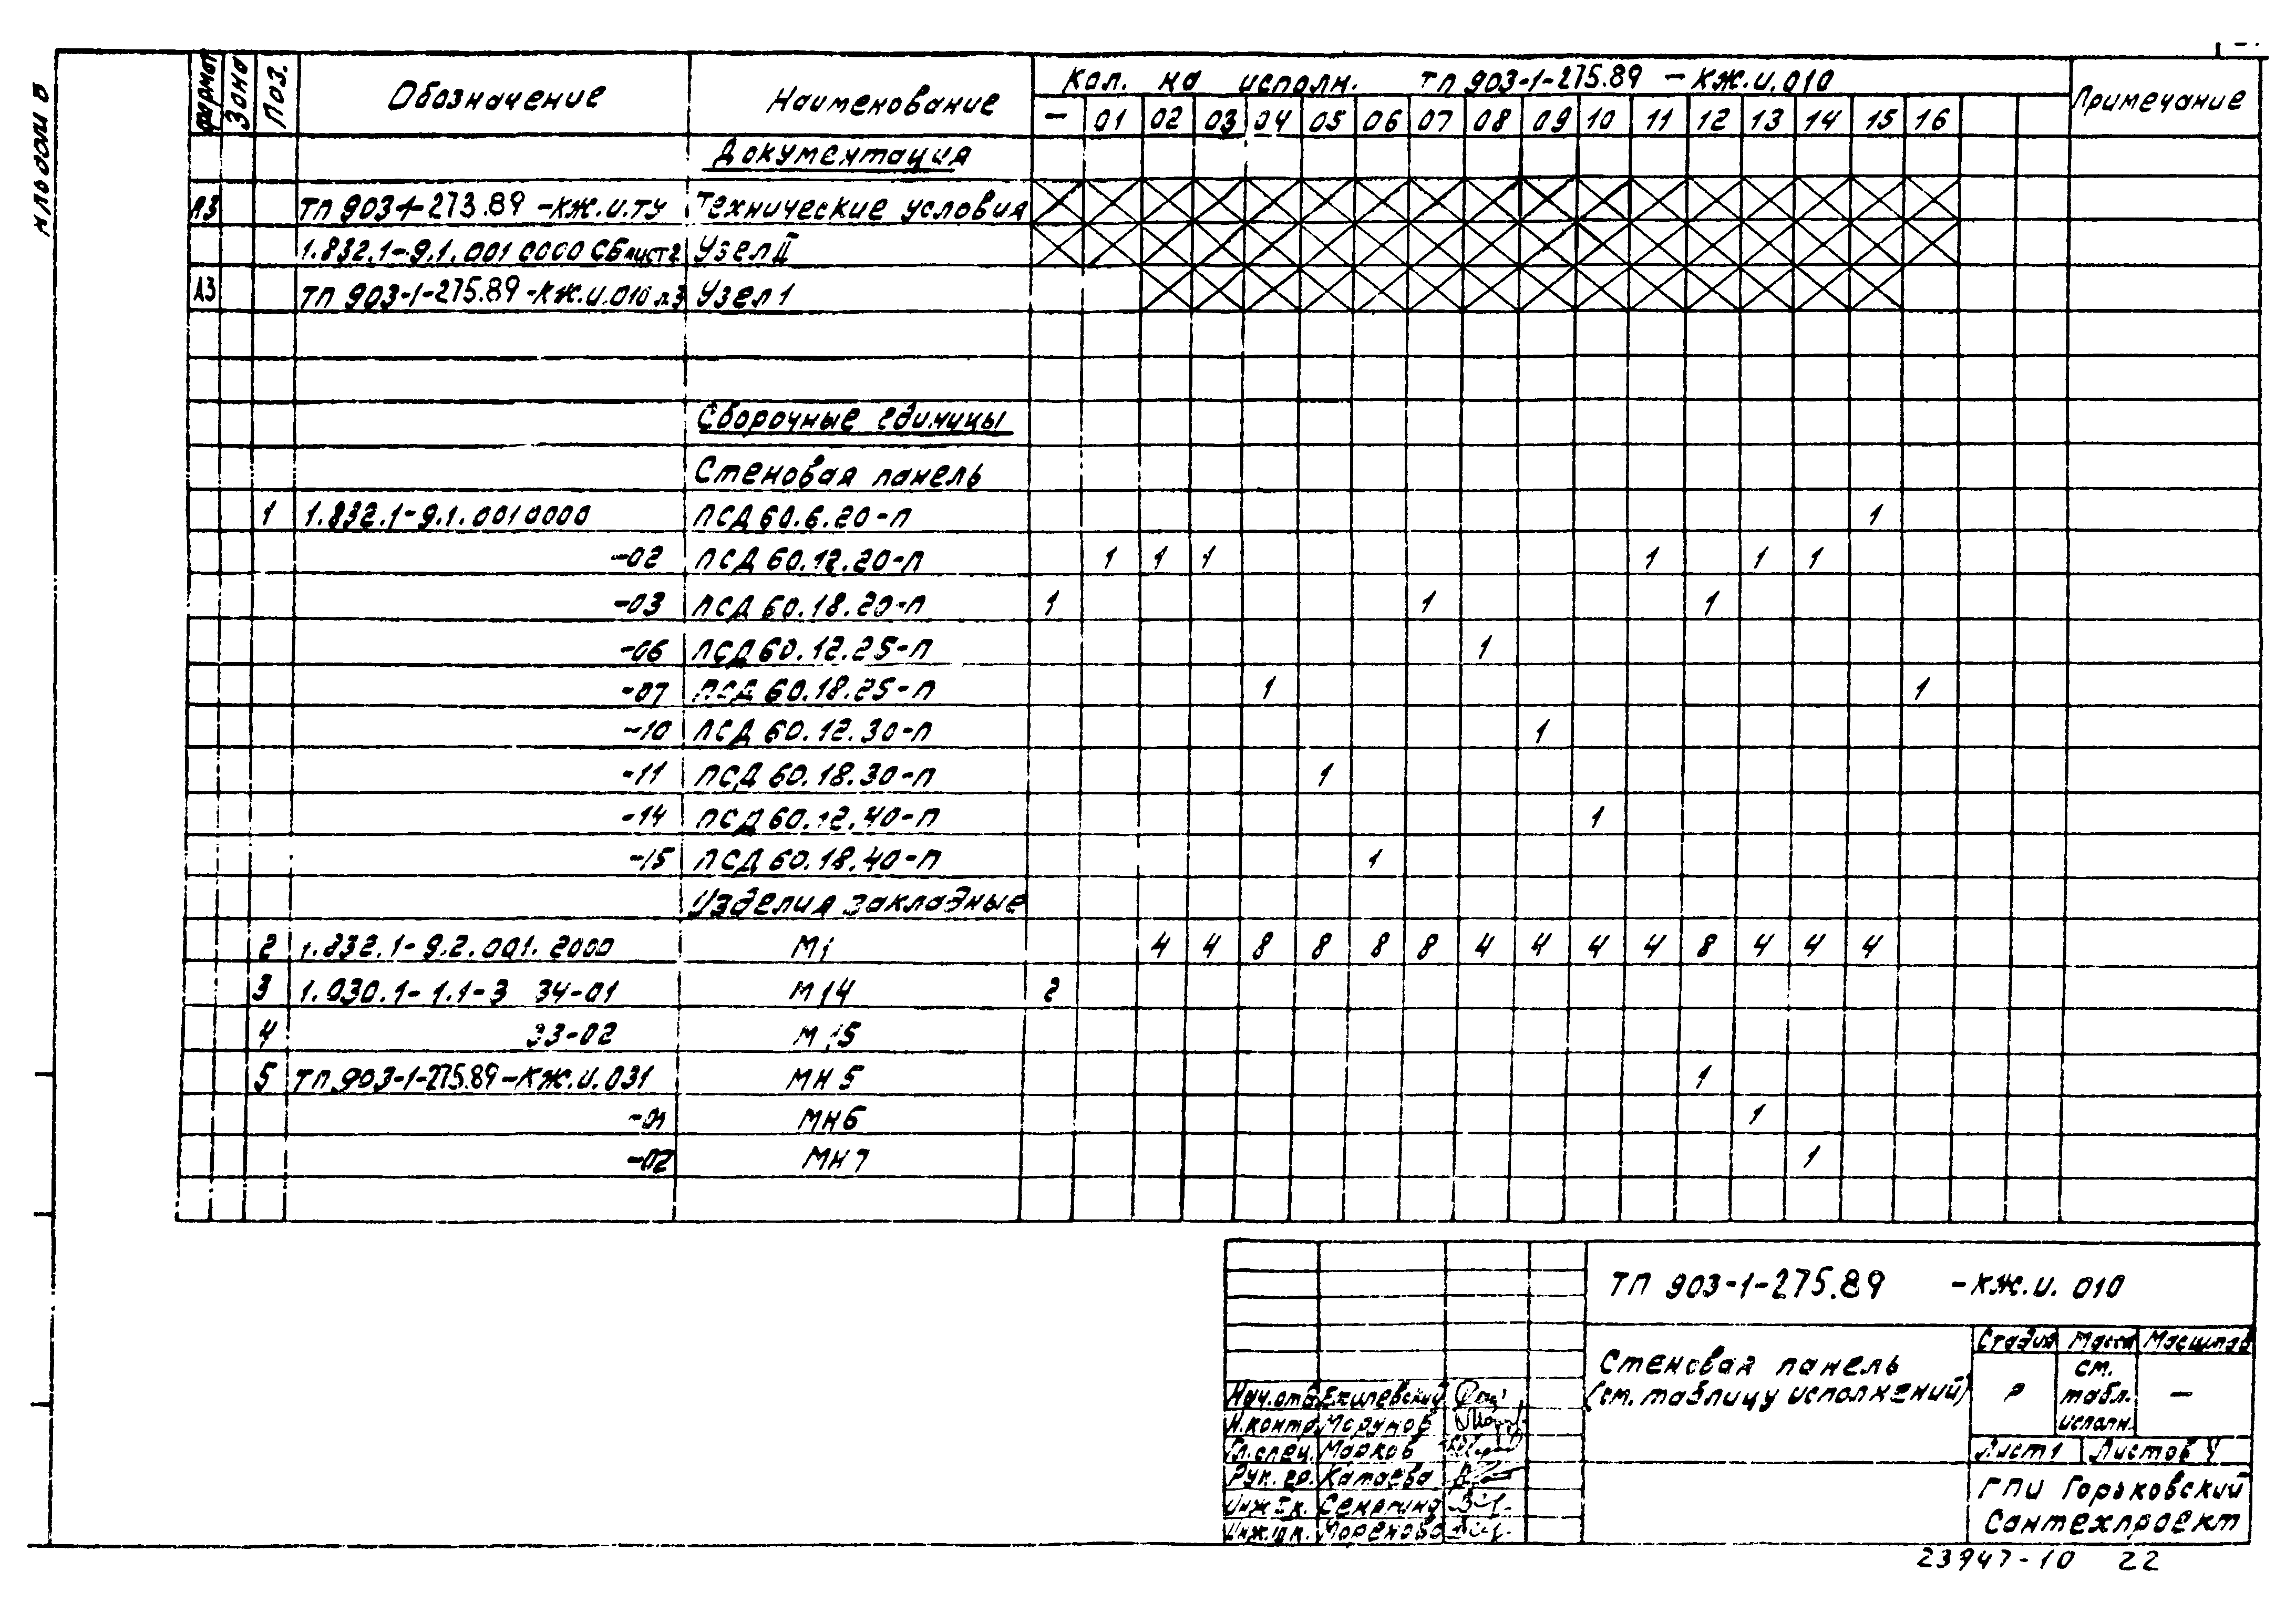 Альбом 8
Формат Зона Поз. Обозначение Наименование Кол. на исполн. ТП 903-1-275.89 -КЖ.И.010 Примечание
— 01 02 03 04 05 06 07 08 09 10 11 12 13 14 15 16
Документация
А3 ТП 903-1-273.89 -КЖ.И.ТУ Технические условия
1.832.1-9.1.001 0000 СБ лист 2 Узел II
А3 ТП 903-1-275.89 -КЖ.И.010 л3 Узел 1
Сборочные единицы
Стеновая панель
1 1.832.1-9.1.0010000 ПСД 60.6.20-П 1
-02 ПСД 60.12.20-П 1 1 1 1 1 1
-03 ПСД 60.18.20-П 1 1 1
-06 ПСД 60.12.25-П 1
-07 ПСД 60.18.25-П 1 1
-10 ПСД 60.12.30-П 1
-11 ПСД 60.18.30-П 1
-14 ПСД 60.12.40-П 1
-15 ПСД 60.18.40-П 1
Изделия закладные
2 1.832.1-9.2.001.2000 М1 4 4 8 8 8 8 4 4 4 4 8 4 4 4
3 1.030.1-1.1-3 34-01 М14 2
4 33-02 М15
5 ТП 903-1-275.89-КЖ.И.031 МН5 1
-01 МН6 1
-02 МН7 1
ТП 903-1-275.89 -КЖ.И. 010
Стеновая панель
(см. таблицу исполнений)
Стадия Масса Масштаб
Р см. табл. исполн. —
Лист 1 Листов 4
ГПИ Горьковский
Сантехпроект
Нач.отд. Ехилевский
Н.контр. Морунов
Гл.спец. Марков
Рук. гр. Катаева
Инж. I к. Сенягина
Инж. II к.
23947-10 22